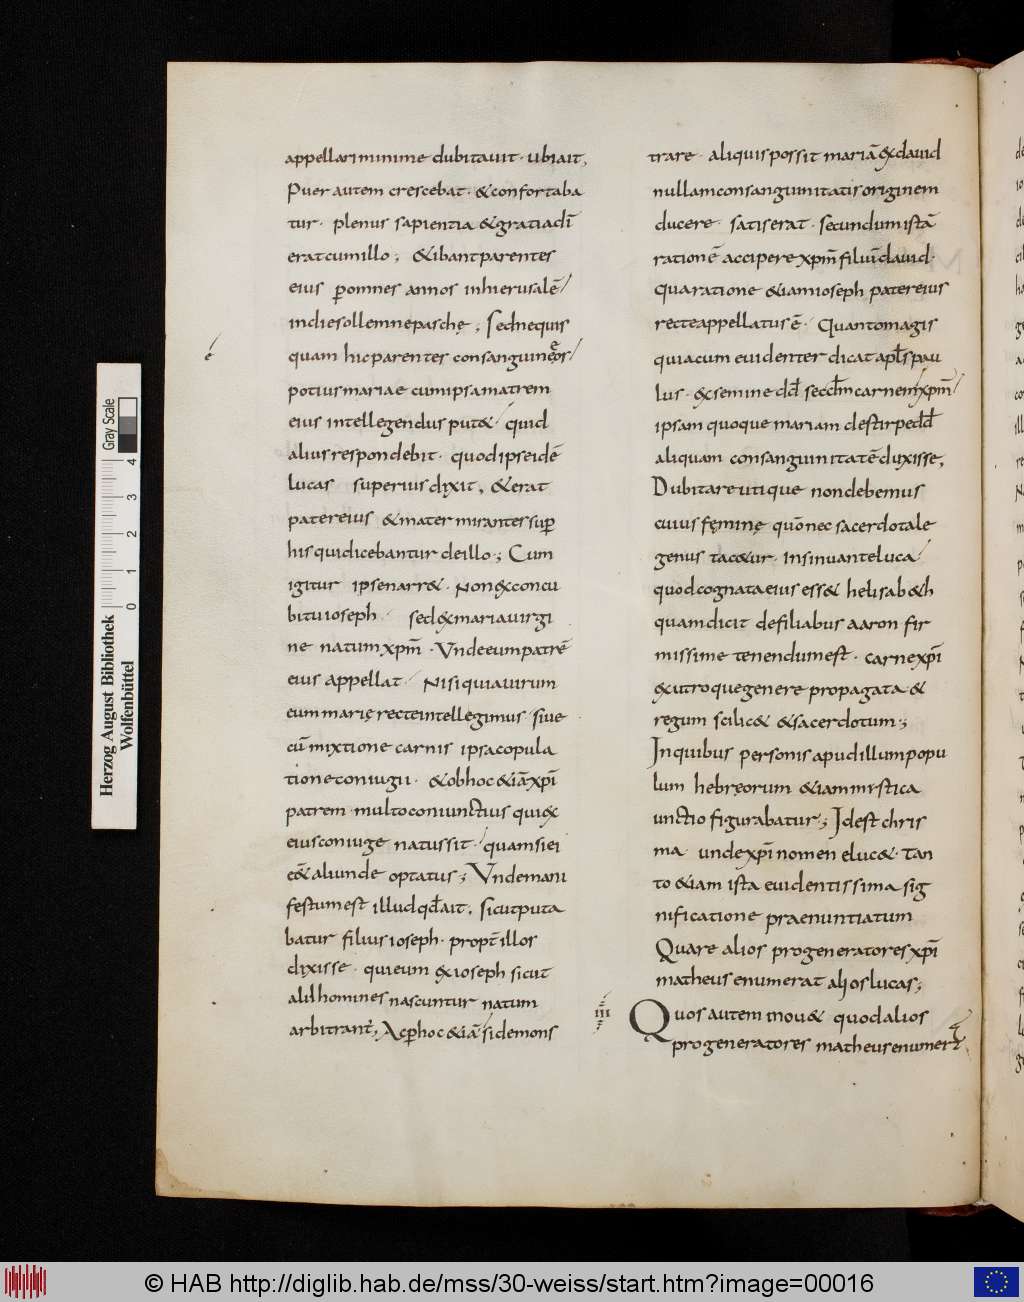 appellari minime dubitavit · ubi ait,
Puer autem crescebat · & confortaba
tur · plenus sapientia & gratia dī
erat cum illo ; & ibant parentes
eius ꝑ omnes annos in hierusalē
in die sollemne paschę ; Sed nequis
quam hic parentes consanguineos
potius mariae cum ipsa matrem
eius intellegendus put& quid
alius respondebit · quod ipse idē
lucas superius dixit , & erat
pater eius & mater mirantes suꝑ
his qui dicebantur de illo ; Cum
igitur ipse narr& · Non ex concu
bitu ioseph sed ex maria virgi
ne natum xp̄m · Unde eum patrē
eius appellat · Nisi quia virum
eum marię recte intellegimus sive
cū mixtione carnis ipsa copula
tione coniugii · & ob hoc &iā xp̄i
patrem multo coniunctius qui ex
eius coniuge natus sit · quam si ei
e& aliunde optatus ; Unde mani
festum est illud qd̄ ait , Sicut puta
batur filius ioseph · propt̄ illos
dixisse · qui eum ex ioseph sicut
alii homines nascuntur natum
arbitrant̄, Ac ꝑ hoc &iā si demons
trare · aliquis possit mariā ex david
nullam consanguinitatis originem
ducere · satis erat · secundum istā
rationē accipere xp̄m filiū david ·
qua ratione &iam ioseph pater eius
recte appellatus ē · Quanto magis
quia cum evidenter dicat apl̄s pau
lus · ex semine dd̄ secdm̄ carnem xp̄m
ipsam quoque mariam de stirpe dd̄
aliquam consanguinitatē duxisse,
Dubitare utique non debemus
cuius fęminę quō nec sacerdotale
genus tac&ur · insinuante luca
quod cognata eius ess& helisab&h
quam dicit de filiabus aaron fir
missime tenendum est · carnē xp̄i
ex utroque genere propagata ·
regum scilic& & sacerdotum ;
In quibus personis apud illum popu
lum hebręorum &iam mystica
unctio figurabatur ; Id est chris
ma unde xp̄i nomen eluc& · tan
to &iam ista evidentissima sig
nificatione praenuntiatum
Quare alios progeneratores xp̄i
matheus enumerat alios lucas ;
iii Quos autem mov& quod alios
progeneratores matheus enumer&
Herzog August Bibliothek
Wolfenbüttel
0 1 2 3 4
Gray Scale
© HAB http://diglib.hab.de/mss/30-weiss/start.htm?image=00016